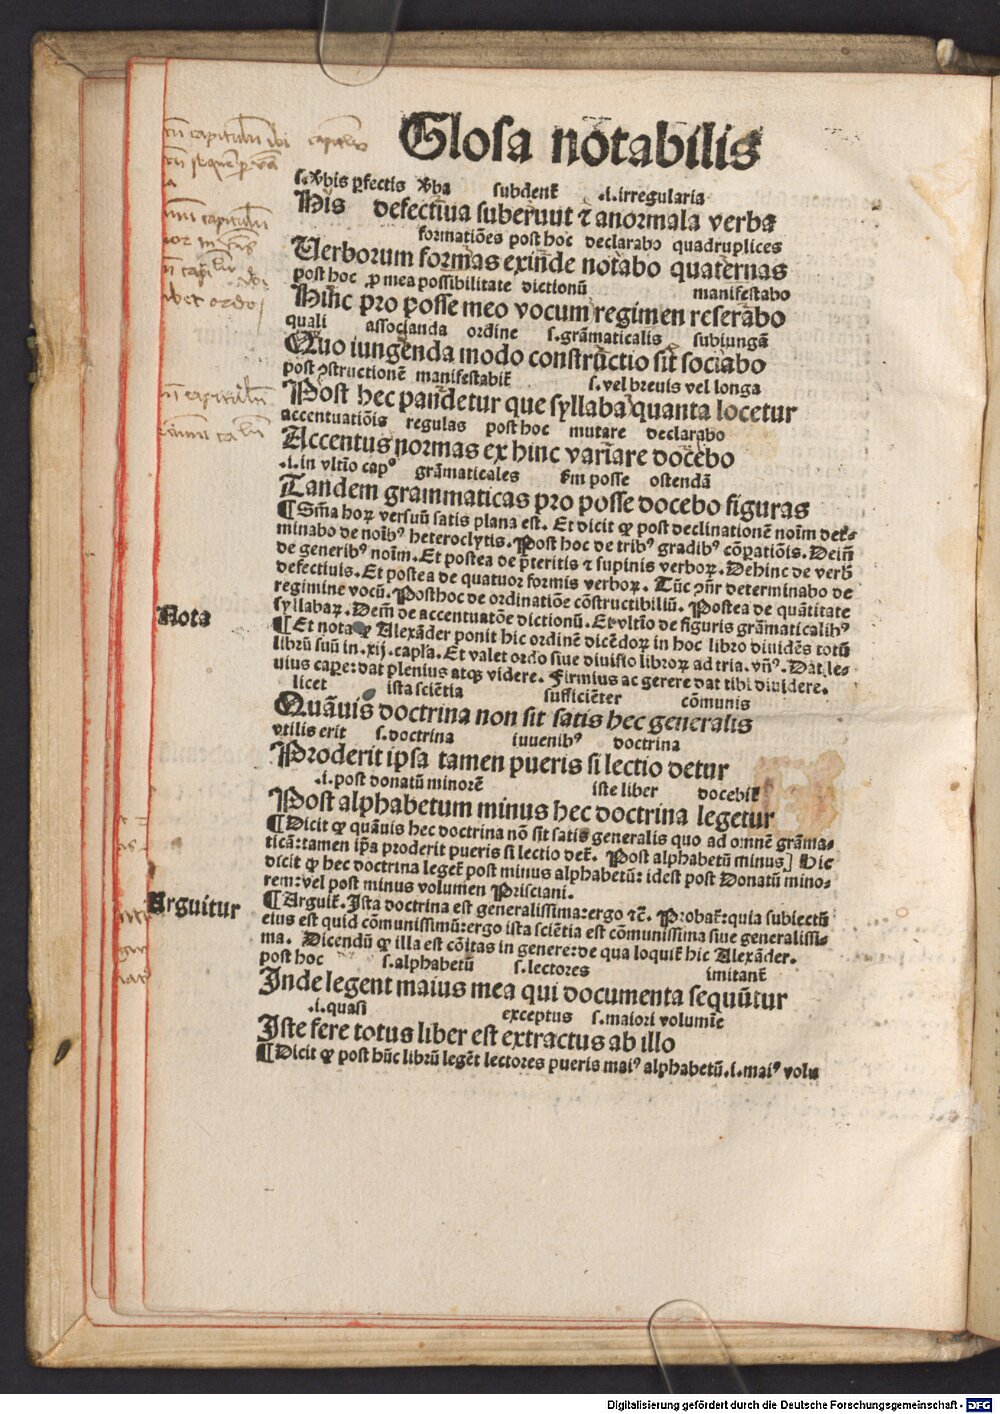 Glosa notabilis
s. v̾bis ꝑfectis v̾ba subdent᷑ .i. irregularia
His defectiua suberuut ⁊ anormala verba
formatiões post hoc declarabo quadruplices
Uerborum formas exinde notabo quaternas
post hoc ꝓ mea possibilitate dictionũ manifestabo
Hinc pro posse meo vocum regimen reserabo
quali associanda ordine s. grãmaticalis subiungã
Quo iungenda modo constructio sit sociabo
post ꝯstructionẽ manifestabit᷑ s. vel breuis vel longa
Post hec pandetur que syllaba quanta locetur
accentuatiõis regulas post hoc mutare declarabo
Accentus normas ex hinc variare docebo
.i. in vltĩo cap⁰ grãmaticales ẜm posse ostendã
Tandem grammaticas pro posse docebo figuras
¶ Sm̃a hoꝝ versuũ satis plana est. Et dicit ꝙ post declinationẽ noĩm det̾-
minabo de noĩbꝰ heteroclytis. Post hoc de tribꝰ gradibꝰ cõꝑatiõis. Dein̄
de generibꝰ noĩm. Et postea de p̃teritis ⁊ supinis verboꝝ. Dehinc de verb̃
defectiuis. Et postea de quatuor formis verboꝝ. Tũc ꝯñr determinabo de
regimine vocũ. Posthoc de ordinatiõe cõstructibiliũ. Postea de quãtitate
syllabaꝝ. Dem̃ de accentuatõe dictionũ. Et vltĩo de figuris grãmaticalibꝰ
Nota
¶ Et nota ꝙ Alexãder ponit hic ordinẽ dicẽdoꝝ in hoc libro diuidẽs totũ
librũ suũ in .xij. capl̃a. Et valet ordo siue diuisio libroꝝ ad tria. vñꝰ. Dat le-
uius caꝑe: dat plenius atqꝫ videre. Firmius ac gerere dat tibi diuidere.
licet ista sciẽtia sufficiẽter cõmunis
Quãuis doctrina non sit satis hec generalis
vtilis erit s. doctrina iuuenibꝰ doctrina
Proderit ipsa tamen pueris si lectio detur
.i. post donatũ minorẽ iste liber docebit᷑
Post alphabetum minus hec doctrina legetur
¶ Dicit ꝙ quãuis hec doctrina nõ sit satis generalis quo ad omnẽ grãma-
ticã: tamen ip̃a proderit pueris si lectio det᷑. Post alphabetũ minus] Hic
dicit ꝙ hec doctrina leget᷑ post minus alphabetũ: idest post Donatũ mino-
rem: vel post minus volumen Prisciani.
Arguitur
¶ Arguit᷑. Ista doctrina est generalissima: ergo ⁊c̃. Probat᷑: quia subiectũ
eius est quid cõmunissimũ: ergo ista sciẽtia est cõmunissima siue generalissi-
ma. Dicendũ ꝙ illa est cõitas in genere: de qua loquit᷑ hic Alexãder.
post hoc s. alphabetũ s. lectores imitant᷑
Inde legent maius mea qui documenta sequũtur
.i. quasi exceptus s. maiori volumĩe
Iste fere totus liber est extractus ab illo
¶ Dicit ꝙ post hũc librũ legẽt lectores pueris maiꝰ alphabetũ. i. maiꝰ volu
Digitalisierung gefördert durch die Deutsche Forschungsgemeinschaft - DFG